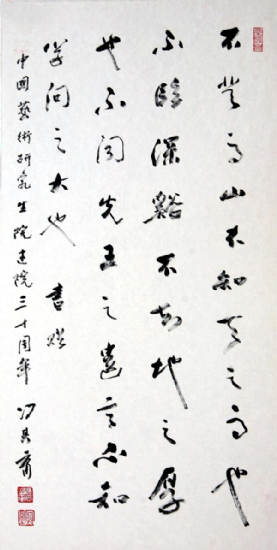 不登高山不知天之高也
不臨深谿不知地之厚
也不聞先王之遺言不知
學問之大也 書賀
中國藝術研究生院建院三十周年 馮其庸